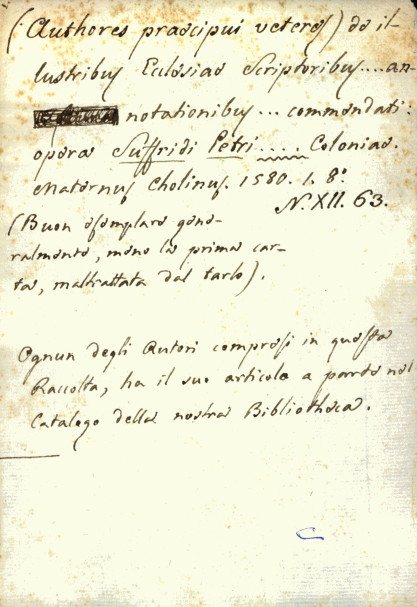 (Authores praecipui veteres) de il-
lustribus Ecclesiae Scriptoribus.... an-
notationibus... commendati:
opera Suffridi Petri..... Coloniae.
Maternus Cholinus. 1580. 1. 8°
N. XII. 63.
(Buon esemplare gene-
ralmente, meno la prima car-
ta, maltrattata dal tarlo).
Ognun degli Autori compresi in questa
Raccolta, ha il suo articolo a parte nel
Catalogo della nostra Bibliotheca.